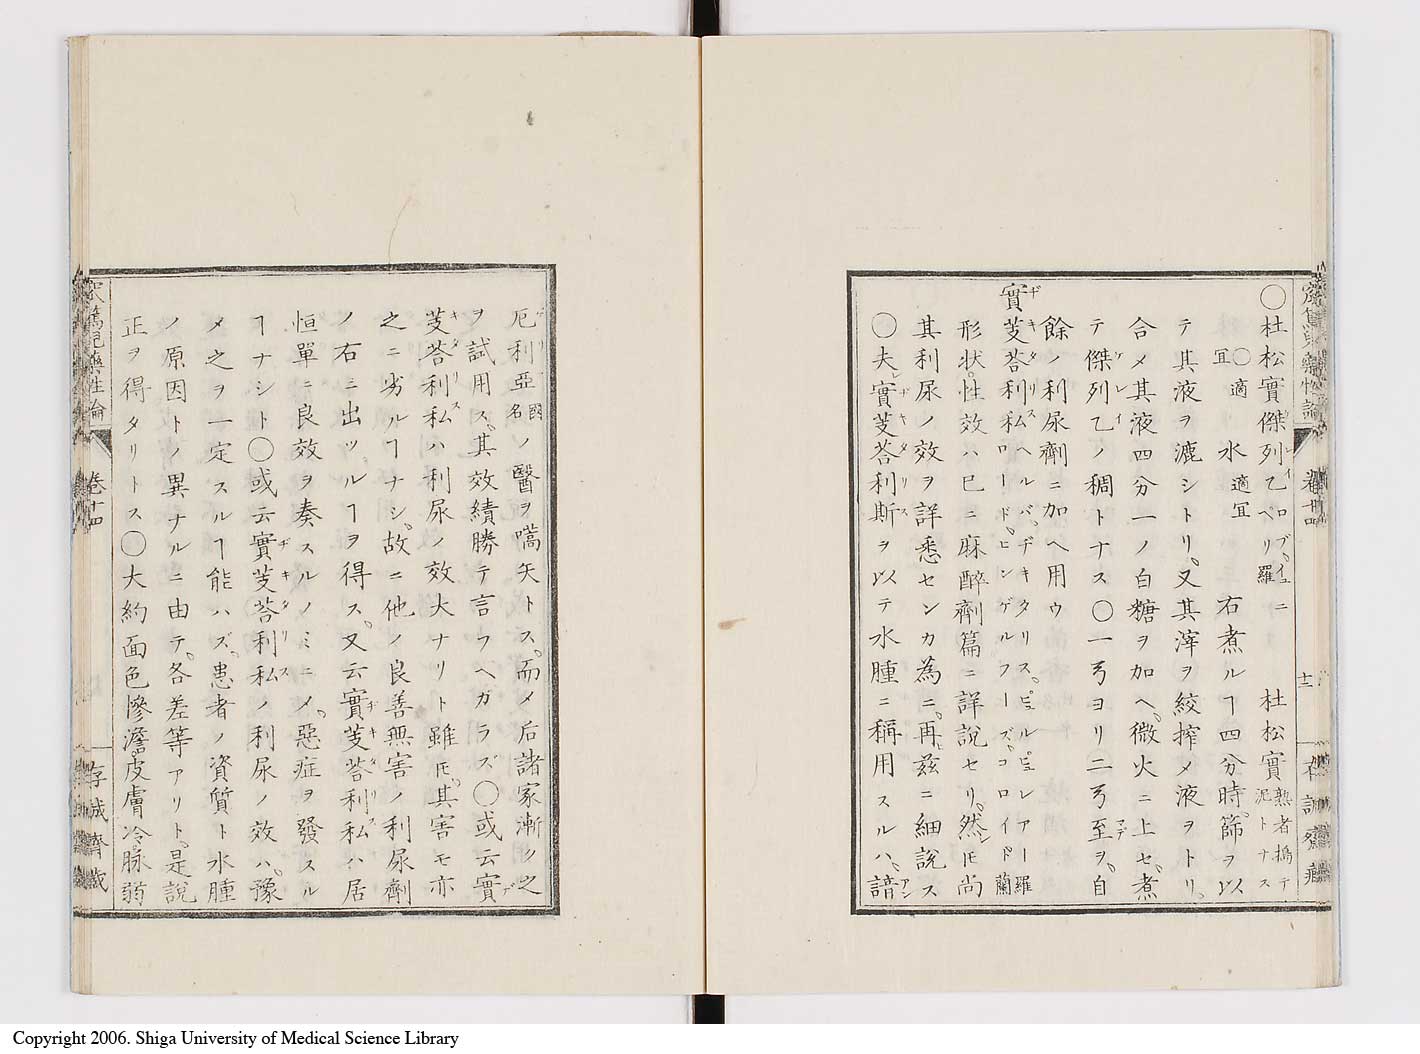 〇杜松實傑列乙ロブ、イユニペリ羅 杜松實熟者搗テ泥トナス
〇適宜 水適宜 右煮ルヿ四分時。篩ヲ以
テ其液ヲ漉シトリ。又其滓ヲ絞搾メ液ヲトリ。
合メ其液四分一ノ白糖ヲ加ヘ。微火ニ上セ。煮
テ傑列乙ノ稠トナス〇一弓ヨリ二弓至ヲ。自
餘ノ利尿劑ニ加ヘ用ウ
實芰荅利私ヘルバ、ヂキタリス、ピュルピュレアー羅ロードヒンゲルフーズコロイド蘭
形状。性效ハ已ニ麻醉劑篇ニ詳說セリ。然𪜈尚
其利尿ノ效ヲ詳悉センカ為ニ。再ヒ茲ニ細說ス
〇夫レ實芰荅利斯ヲ以テ水腫ニ稱用スルハ。諳
厄利亞國名ノ醫ヲ嚆矢トス。而メ后諸家漸ク之
ヲ試用ス。其效績勝テ言フヘガラズ〇或云實
芰荅利私ハ利尿ノ效大ナリト雖𪜈。其害モ亦
之ニ劣ルヿナシ。故ニ他ノ良善無害ノ利尿劑
ノ右ニ出ツルヿヲ得ス。又云實芰荅利私ハ居
恒單ニ良效ヲ奏スルノミニメ。惡症ヲ發スル
ヿナシト〇或云實芰荅利私ノ利尿ノ效ハ。豫
メ之ヲ一定スルヿ能ハズ。患者ノ資質ト水腫
ノ原因トノ異ナルニ由テ。各差等アリト。是說
正ヲ得タリトス〇大約面色慘澹。皮膚冷。脉弱
卷十四